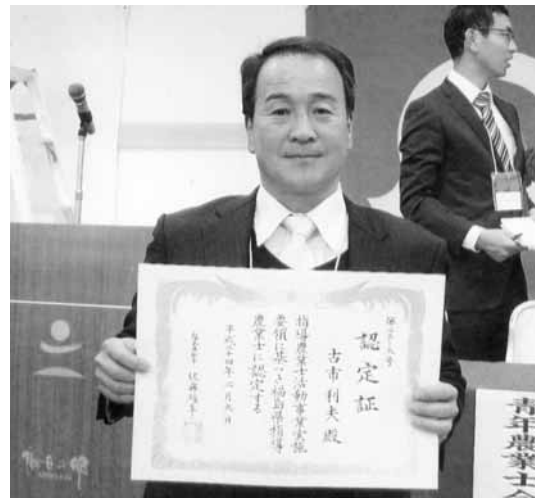 認定証
古市利夫殿
指導農業士活動事業実施
要領に基づき福島県指導
農業士に認定する
福島県知事 佐藤雄平
青年農業士会